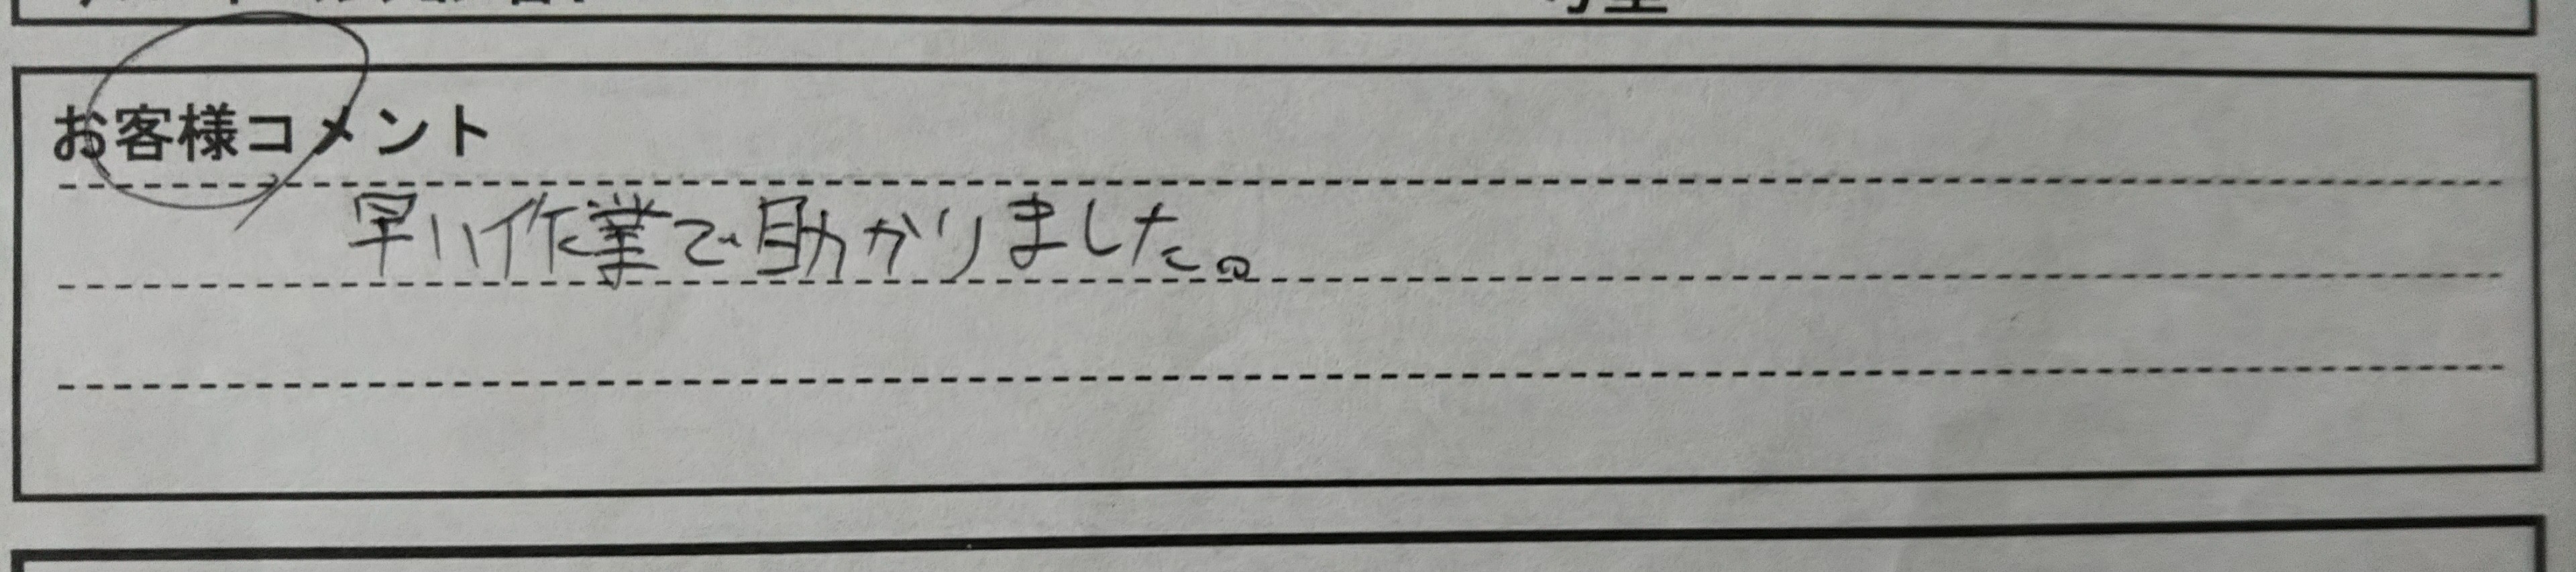 お客様コメント
早い作業で助かりました。